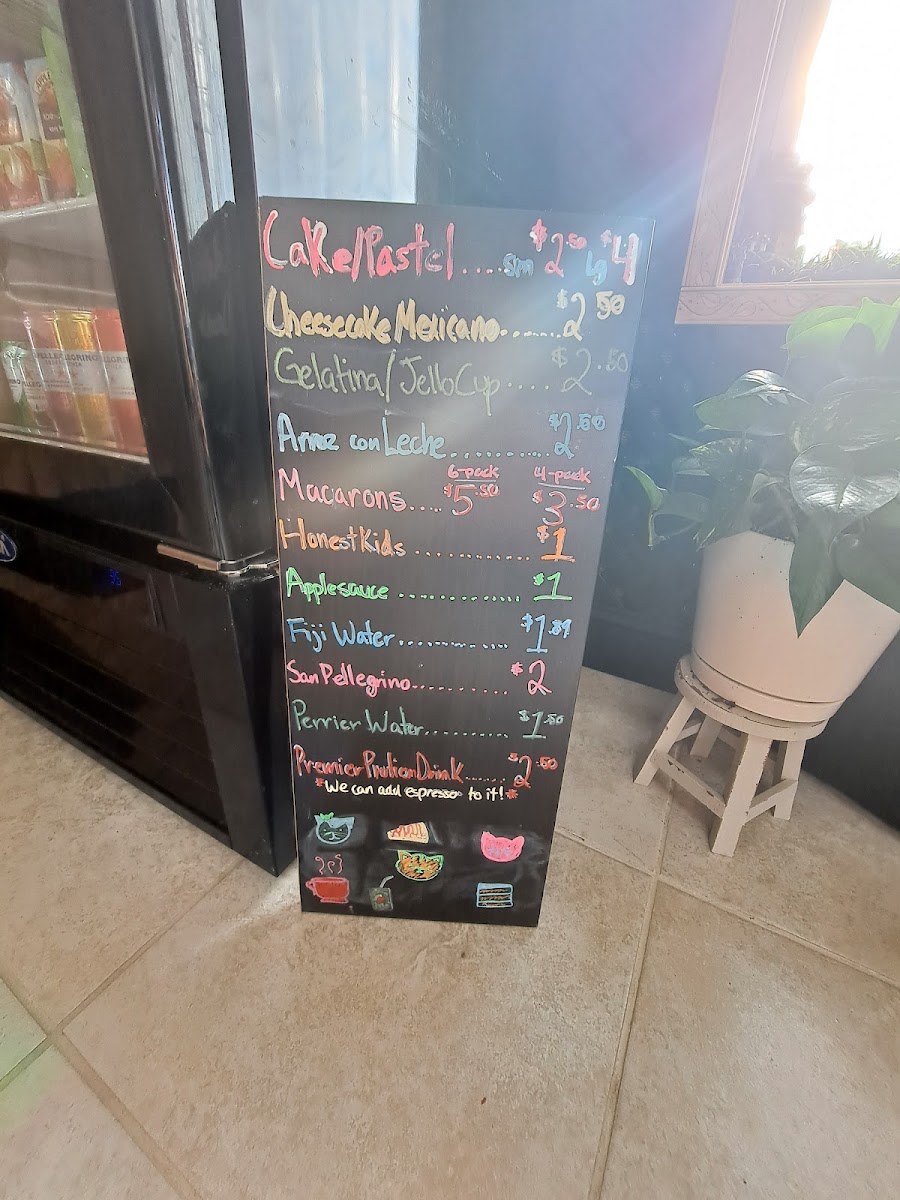 Cake/Pastel....sm $2.50 lg $4
Cheesecake Mexicano........$2.50
Gelatina/Jello Cup.....$2.50
Arroz con Leche..........$2.50
6-pack 4-pack
Macarons.... $5.50 $3.50
Honest Kids ............ $1
Applesauce ............. $1
Fiji Water............ $1.89
San Pellegrino.......... $2
Perrier Water.......... $1.50
Premier Protien Drink...... $2.50
*We can add espresso to it!*
PELLEGRINO